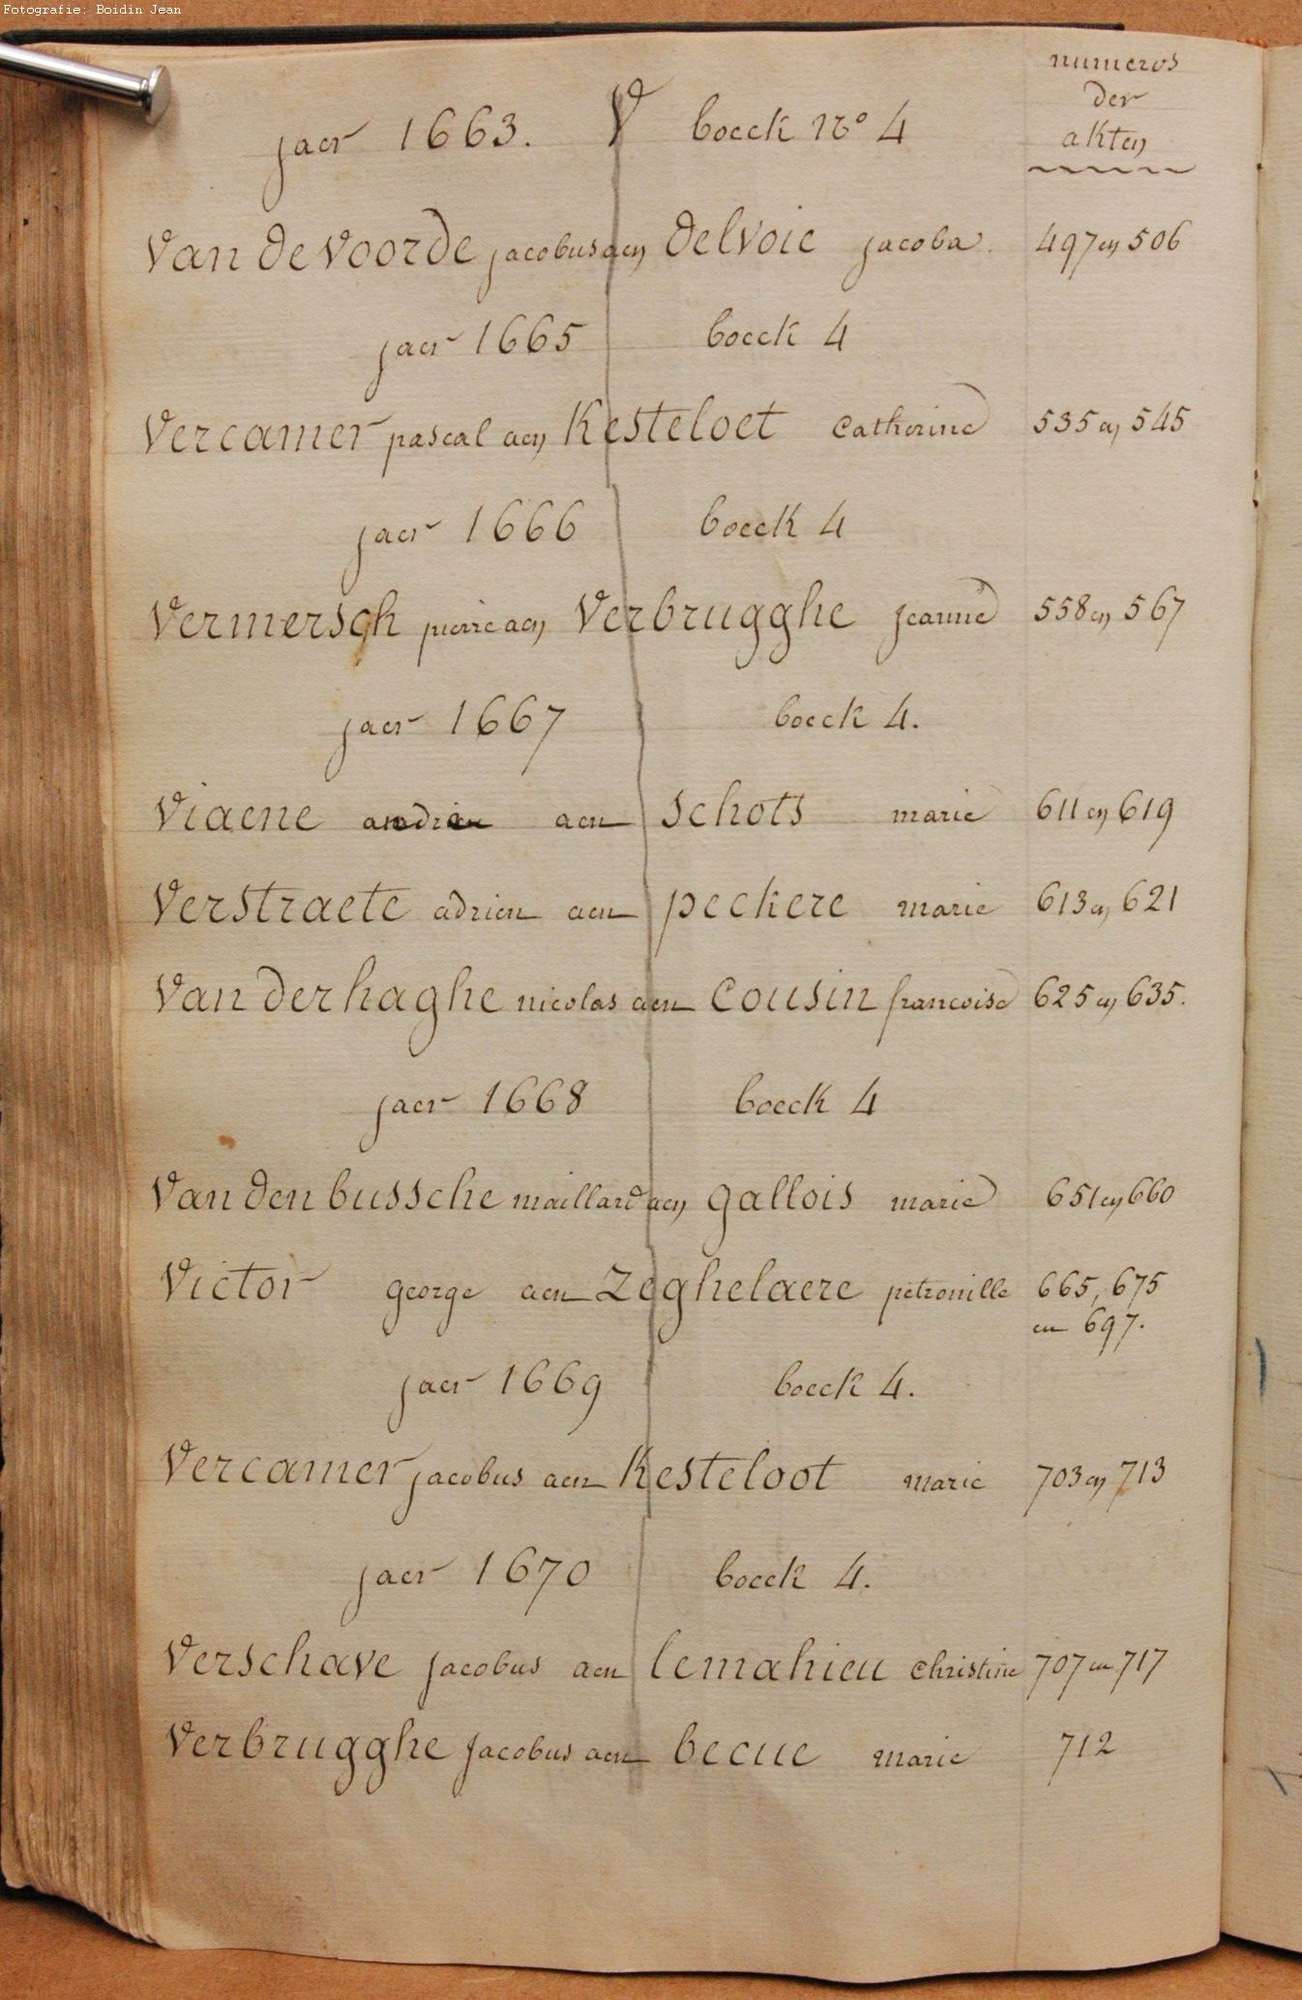 Fotografie: Boidin Jean
numeros
der
akten
jaer 1663. V boeck No 4
Van de voorde jacobus aen Delvoie jacoba 497 en 506
jaer 1665 boeck 4
Vercamer pascal aen Kesteloet Catherine 535 en 545
jaer 1666 boeck 4
Vermersch pierre aen Verbrugghe jeanne 558 en 567
jaer 1667 boeck 4.
Viaene andrieu aen Schots marie 611 en 619
Verstraete adrien aen peckere marie 613 en 621
Van der haghe nicolas aen Cousin francoise 625 en 635.
jaer 1668 boeck 4
Van den bussche maillard aen gallois marie 651 en 660
Victor george aen Zeghelaere petronille 665, 675
en 697.
jaer 1669 boeck 4.
Vercamer jacobus aen Kesteloot marie 703 en 713
jaer 1670 boeck 4.
Verschave jacobus aen lemahieu christine 707 en 717
Verbrugghe jacobus aen becue marie 712